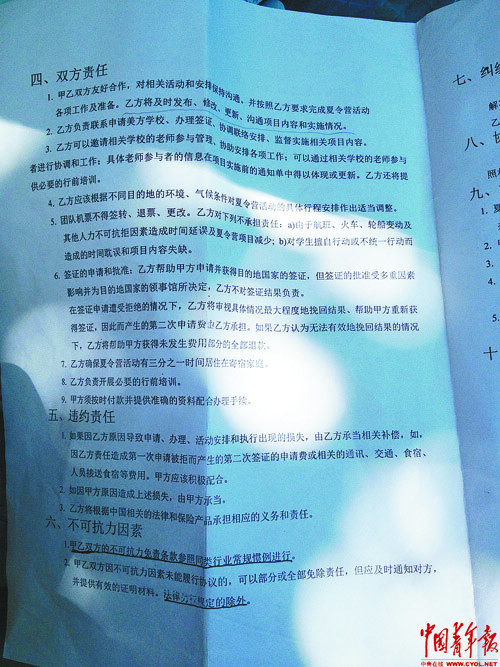 四、双方责任
1. 甲乙双方友好合作，对相关活动和安排保持沟通。并按照乙方要求完成夏令营活动
各项工作及准备。乙方将及时发布、修改、更新、沟通项目内容和实施情况。
2. 乙方负责联系申请美方学校、办理签证、协调联络安排、监督实施相关项目内容。
3. 乙方可以邀请相关学校的老师参与管理，协助安排各项工作；可以通过相关学校的老师参与
者进行协调和工作；具体老师参与者的信息在项目实施前的通知单中得以体现或更新。乙方还将提
供必要的行前培训。
4. 乙方应该根据不同目的地的环境、气候条件对夏令营活动的具体行程安排作出适当调整。
5. 团队机票不得签转、退票、更改。乙方对下列不承担责任：a)由于航班、火车、轮船变动及
其他人力不可抗拒因素造成时间延误及夏令营项目减少；b)对学生擅自行动或不统一行动而
造成的时间耽误和项目内容失缺。
6. 签证的申请和批准：乙方帮助甲方申请并获得目的地国家的签证，但签证的批准受多重因素
影响并为目的地国家的领事馆所决定，乙方不对签证结果负责。
在签证申请遭受拒绝的情况下，乙方将审视具体情况最大程度地挽回结果、帮助甲方重新获
得签证，因此而产生的第二次申请费由乙方承担。如果乙方认为无法有效地挽回结果的情况
下，乙方将帮助甲方获得未发生费用部分的全部退款。
7. 乙方确保夏令营活动有三分之一时间居住在寄宿家庭。
8. 乙方负责开展必要的行前培训。
9. 甲方须按时付款并提供准确的资料配合办理手续。
五、违约责任
1. 如果因乙方原因导致申请、办理、活动安排和执行出现的损失，由乙方承当相关补偿，如，
因乙方责任造成第一次申请被拒而产生的第二次签证的申请费或相关的通讯、交通、食宿、
人员接送食宿等费用。甲方应该积极配合。
2. 如因甲方原因造成上述损失，由甲方承当。
3. 乙方将根据中国相关的法律和保险产品承担相应的义务和责任。
六、不可抗力因素
1.甲乙双方的不可抗力免责条款参照同类行业常规惯例进行。
2. 甲乙双方因不可抗力因素未能履行协议的，可以部分或全部免除责任，但应及时通知对方，
并提供有效的证明材料，法律另有规定的除外。
七、纠纷
解
乙
八、协
照相
九、
1. 夏
2.
3.
5.
十
中国青年报
中青在线 WWW.CYOL.NET